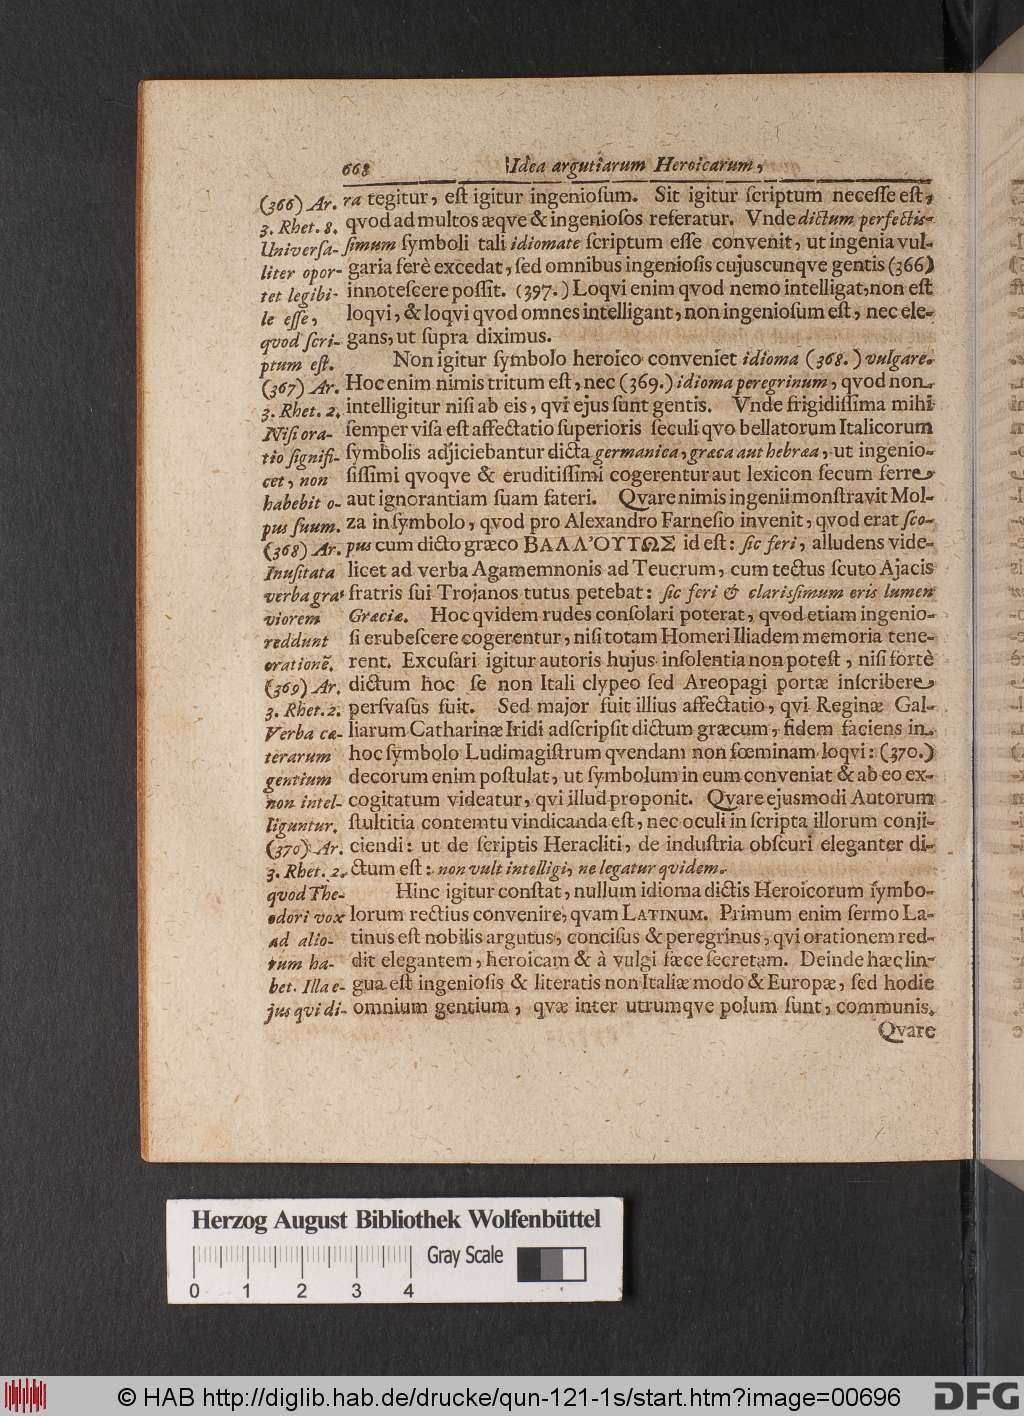 668 Idea argutiarum Heroicarum,
ra tegitur, eſt igitur ingenioſum. Sit igitur ſcriptum neceſſe eſt,
qvod ad multos æqve & ingenioſos referatur. Vnde dictum perfectis-
ſimum ſymboli tali idiomate ſcriptum eſſe convenit, ut ingenia vul-
garia ferè excedat, ſed omnibus ingenioſis cujuscunqve gentis (366)
innoteſcere poſſit. (397.) Loqvi enim qvod nemo intelligat, non eſt
loqvi, & loqvi qvod omnes intelligant, non ingenioſum eſt, nec ele-
gans, ut ſupra diximus.
Non igitur ſymbolo heroico conveniet idioma (368.) vulgare.
Hoc enim nimis tritum eſt, nec (369.) idioma peregrinum, qvod non
intelligitur niſi ab eis, qvi ejus ſunt gentis. Vnde frigidiſſima mihi
ſemper viſa eſt affectatio ſuperioris ſeculi qvo bellatorum Italicorum
ſymbolis adjiciebantur dicta germanica, græca aut hebræa, ut ingenio-
ſiſſimi qvoqve & eruditiſſimi cogerentur aut lexicon ſecum ferre
aut ignorantiam ſuam fateri. Qvare nimis ingenii monſtravit Mol-
za in ſymbolo, qvod pro Alexandro Farneſio invenit, qvod erat ſco-
pus cum dicto græco ΒΑΛΛ'ΟΥΤΩΣ id eſt: ſic feri, alludens vide-
licet ad verba Agamemnonis ad Teucrum, cum tectus ſcuto Ajacis
fratris ſui Trojanos tutus petebat: ſic feri & clarisſimum eris lumen
Græciæ. Hoc qvidem rudes conſolari poterat, qvod etiam ingenio-
ſi erubeſcere cogerentur, niſi totam Homeri Iliadem memoria tene-
rent. Excuſari igitur autoris hujus inſolentia non poteſt, niſi fortè
dictum hoc ſe non Itali clypeo ſed Areopagi portæ inſcribere
perſvaſus fuit. Sed major fuit illius affectatio, qvi Reginæ Gal-
liarum Catharinæ Iridi adſcripſit dictum græcum, fidem faciens in
hoc ſymbolo Ludimagiſtrum qvendam non fœminam loqvi: (370.)
decorum enim poſtulat, ut ſymbolum in eum conveniat & ab eo ex-
cogitatum videatur, qvi illud proponit. Qvare ejusmodi Autorum
ſtultitia contemtu vindicanda eſt, nec oculi in ſcripta illorum conji-
ciendi: ut de ſcriptis Heracliti, de induſtria obſcuri eleganter di-
ctum eſt: non vult intelligi, ne legatur qvidem.
Hinc igitur conſtat, nullum idioma dictis Heroicorum ſymbo-
lorum rectius convenire, qvam LATINUM. Primum enim ſermo La-
tinus eſt nobilis argutus, conciſus & peregrinus, qvi orationem red-
dit elegantem, heroicam & à vulgi fæce ſecretam. Deinde hæc lin-
gua eſt ingenioſis & literatis non Italiæ modo & Europæ, ſed hodie
omnium gentium, qvæ inter utrumqve polum ſunt, communis.
Qvare
(366) Ar.
3. Rhet. 8.
Univerſa-
liter opor-
tet legibi-
le eſſe,
quod ſcri-
ptum eſt.
(367) Ar.
3. Rhet. 2.
Niſi ora-
tio ſignifi-
cet, non
habebit o-
pus ſuum.
(368) Ar.
Inuſitata
verba gra-
viorem
reddunt
orationẽ.
(369) Ar.
3. Rhet. 2.
Verba cæ-
terarum
gentium
non intel-
liguntur.
(370) Ar.
3. Rhet. 2.
quod The-
odori vox
ad alio-
rum ha-
bet. Illa e-
jus qvi di-
Herzog August Bibliothek Wolfenbüttel
Gray Scale
0 1 2 3 4
© HAB http://diglib.hab.de/drucke/qun-121-1s/start.htm?image=00696
DFG